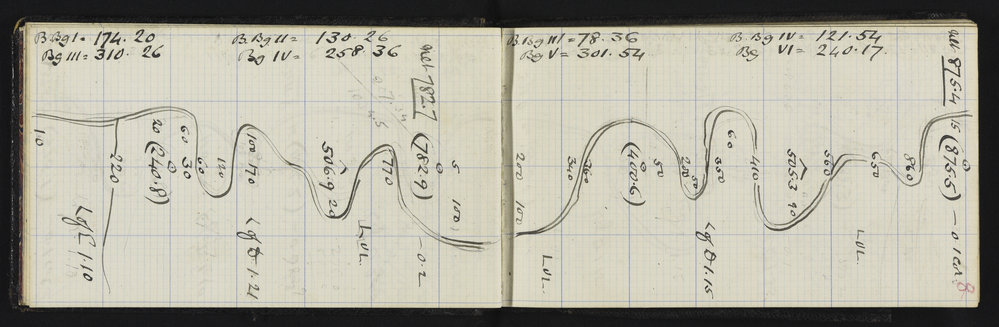 B Bg I = 174.20
Bg III = 310.26
B. Bg II = 130.26
Bg IV = 258.36
net 782.7
10
220
Lg E 1.10
20
(240.8)
60
30
60
120
100
170
506.9
20
LVL.
770
(782.9)
5
100
- 0.2
B. Bg III = 78.36
Bg V = 301.54
B. Bg IV = 121.54
Bg VI = 240.17.
net 875.4
200
100
LVL.
340
360
(400.6)
50
200
50
350
60
410
505.3
90
560
LVL.
650
860
15
(875.5)
- 0.1
8